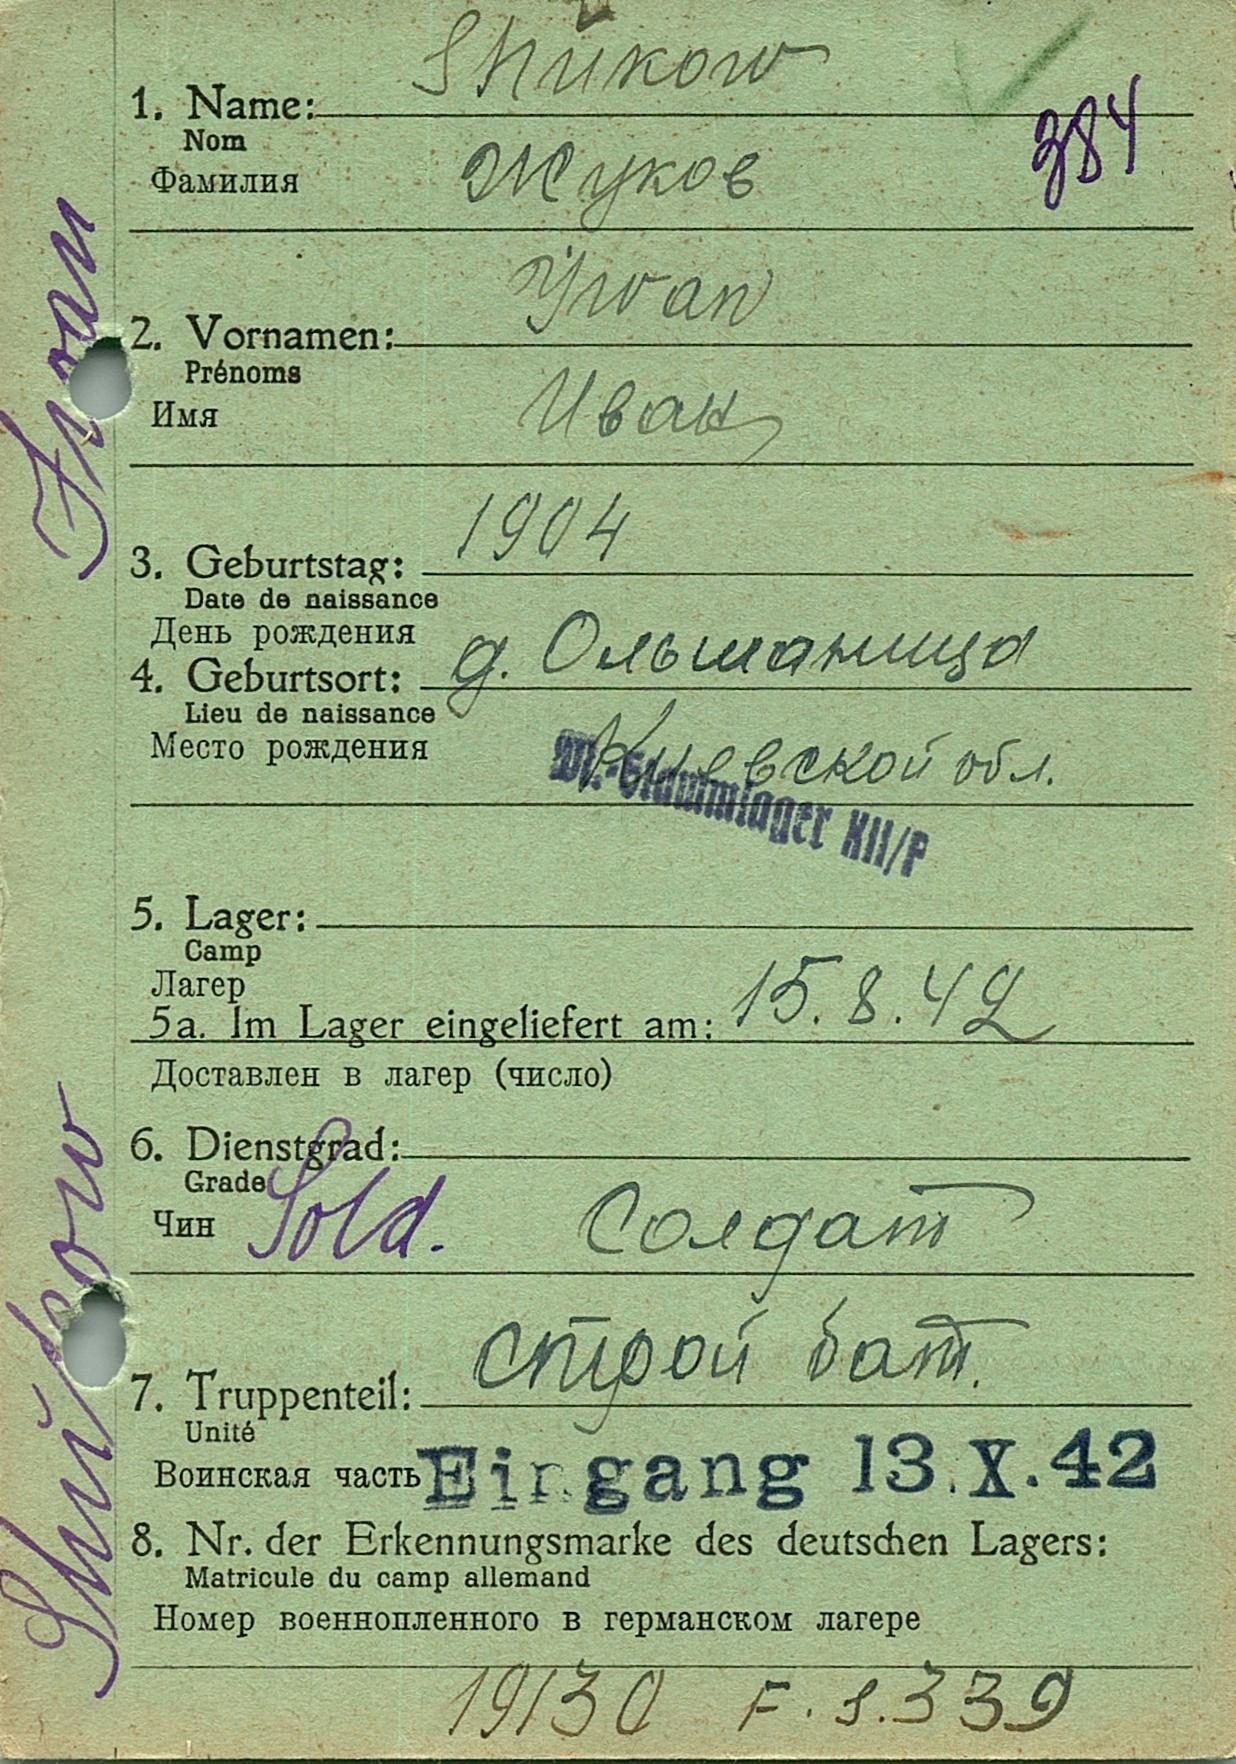 Shukow
1. Name:
Nom
Фамилия
Жуков
384
Iwan
2. Vornamen:
Prénoms
Имя
Иван
1904
3. Geburtstag:
Date de naissance
День рождения
4. Geburtsort: д. Ольшаница
Lieu de naissance
Место рождения
Киевской обл.
M.-Stammlager XII/F
5. Lager:
Camp
Лагер
5a. Im Lager eingeliefert am: 15.8.42
Доставлен в лагер (число)
6. Dienstgrad:
Grade
Чин Sold. солдат
строй бат.
7. Truppenteil:
Unité
Воинская часть Eingang 13.X.42
8. Nr. der Erkennungsmarke des deutschen Lagers:
Matricule du camp allemand
Номер военнопленного в германском лагере
19130 F. s. 339
Shukow Iwan